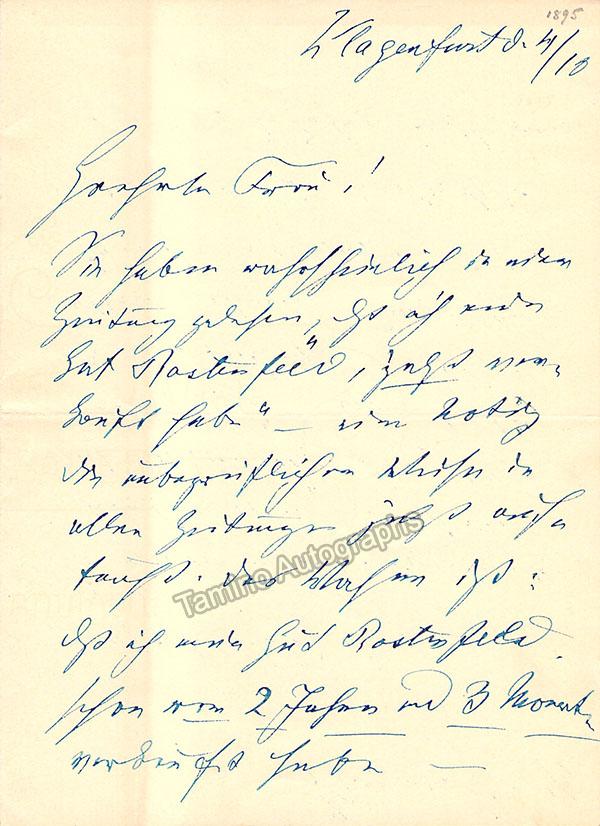 1895
Klagenfurt d. 4/10
Geehrte Frau!
Sie haben wahrscheinlich in einer
Zeitung gelesen, „daß ich mein
Gut Rastenfeld, jetzt ver-
kauft habe" – eine Notiz
die unbegreiflicher Weise in
allen Zeitungen jetzt auf
taucht. Das Wahre ist:
daß ich mein Gut Rastenfeld
schon vor 2 Jahren und 3 Monaten
verkauft habe —
Tamino Autographs